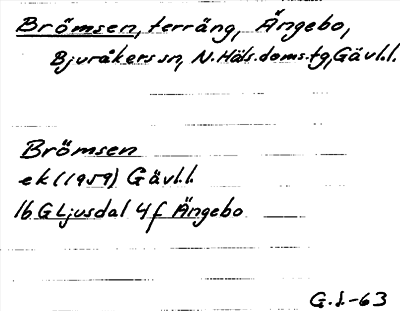 Brömsen, terräng, Ängebo,
Bjuråkers sn, N. Häls. doms.tg, Gävl.l.
Brömsen
ek (1959) Gävl.l.
16 G Ljusdal 4f Ängebo
G.I.-63